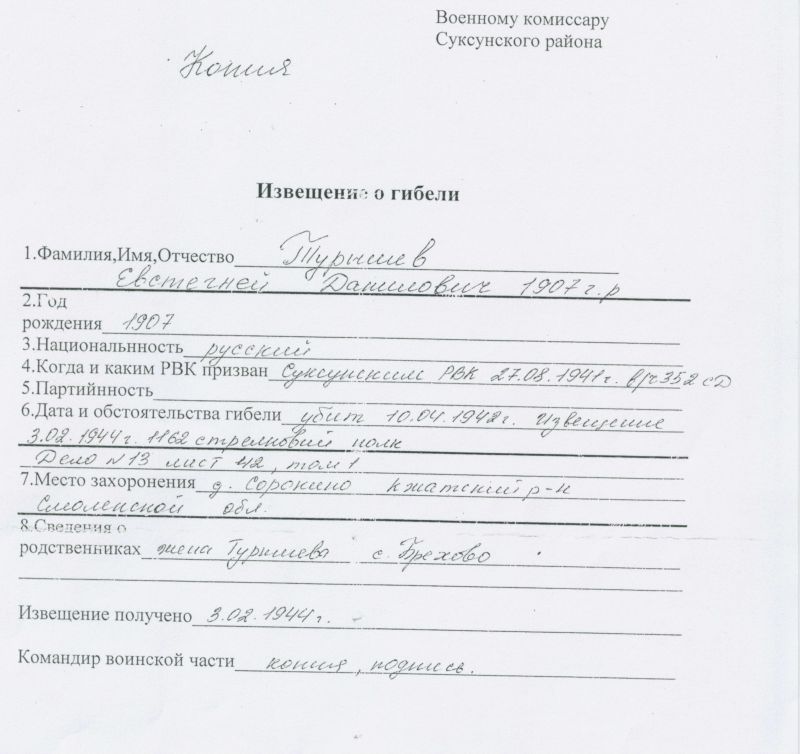 Военному комиссару
Суксунского района
Копия
Извещение о гибели
1.Фамилия,Имя,Отчество Турышев
Евстегней Данилович 1907 г.р
2.Год
рождения 1907
3.Национальнность русский
4.Когда и каким РВК призван Суксунским РВК 27.08.1941г. в/ч 352 сд
5.Партийнность
6.Дата и обстоятельства гибели убит 10.04.1942г. Извещение
3.02.1944г. 1162 стрелковий полк
Дело N13 лист 42, том 1
7.Место захоронения д. Сорокино Кжатский р-н
Смоленской обл.
8.Сведения о
родственниках жена Турышева с. Брехово
Извещение получено 3.02.1944г.
Командир воинской части копия, подпись.